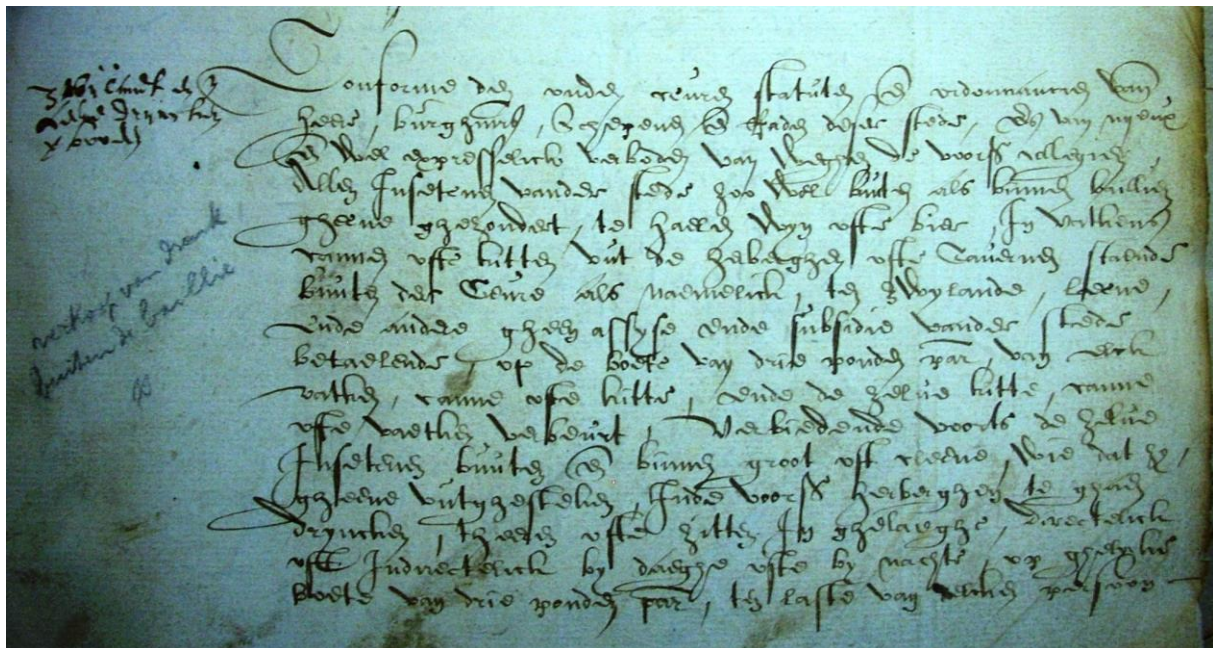 Conforme den ouden ceuren statuten en ordonnancien van
heere, burghmrs, Schepenen en Raden deser stede, es van nyeux
en wel expresselick verboden van weghen de voors collegien
allen Insetenen vander stede zoo wel buuten als binnen baillien
gheene ghezondert, te haelen wyn ofte bier, In vatkens
cannen ofte kitten uut de herberghen ofte Tavernen staende
buuten der Ceure als naemelick, ten zwylande, Leene,
ende andere gheen assyse ende subsidie vander stede
betaelende, op de boete van drie ponden par, van elck
vatken, canne ofte kitte, ende de zelve kitte, canne
ofte vaetken verbeurt, Verbiedende voorts de zelve
Insetenen buuten en binnen groot oft cleene, wie dat zy,
gheene uutghesteken, Inde voors herberghen te gaen
dryncken, theeren ofte zitten In ghelaeghe, directelick
ofte Indirectelick by daeghe ofte by nachte, op ghelycke
boete van drie ponden par, ten laste van elcken persoon
verkoop van drank
buiten de baillie